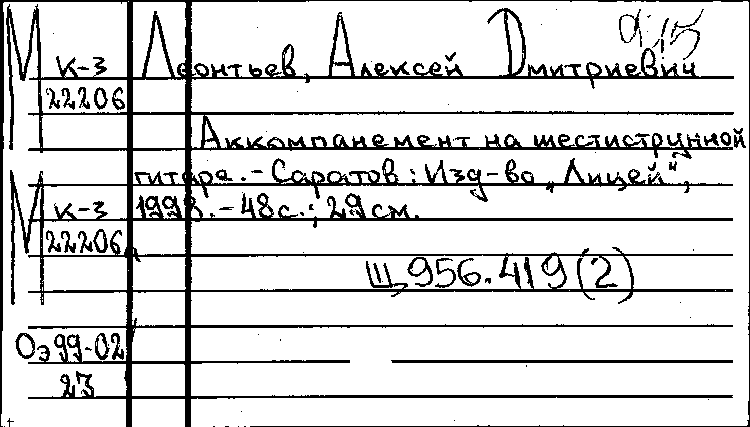 М К-3 Леонтьев, Алексей Дмитриевич
22206
Аккомпанемент на шестиструнной
гитаре. - Саратов: Изд-во „Лицей“,
М К-3 1998. - 48 с.; 29 см.
22206
Щ 956.419(2)
Оэ 99-02
23